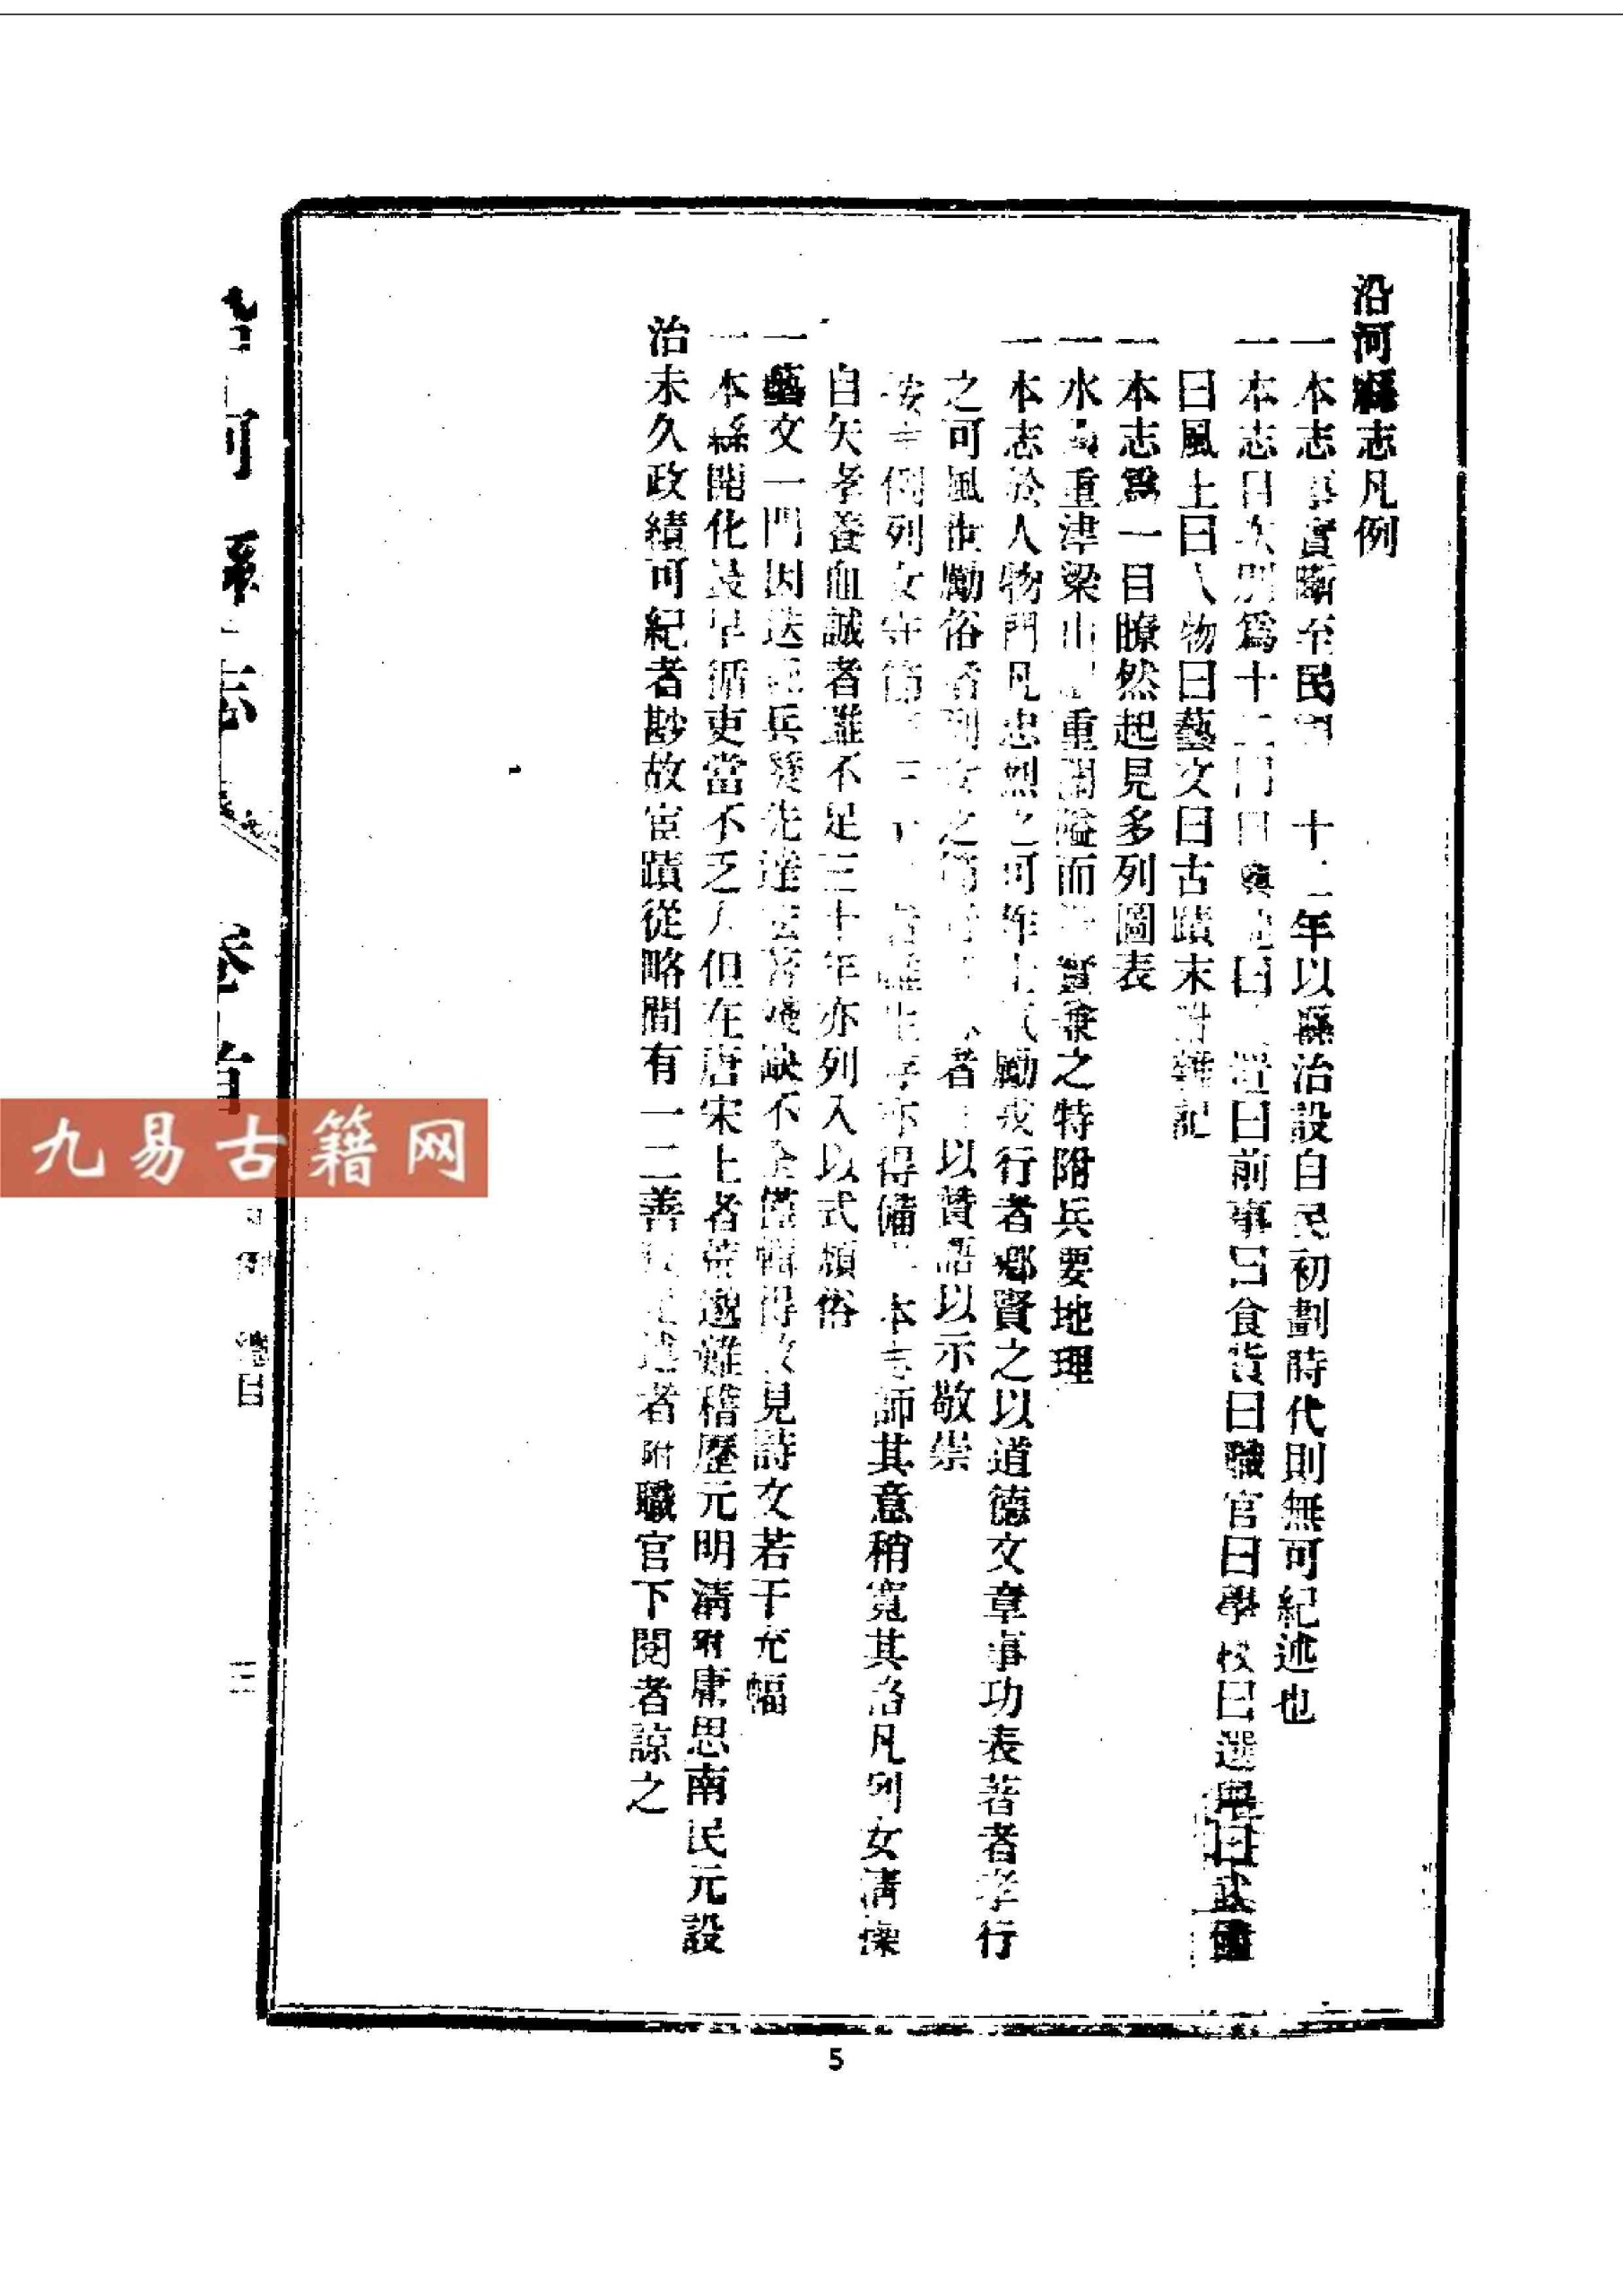 沿河縣志凡例
一本志事實斷至民國 十二年以縣治設自民初劃時代則無可紀述也
一本志目次別爲十二門曰輿地曰 置曰前事曰食貨曰職官曰學校曰選舉曰武備
曰風土曰人物曰藝文曰古蹟末附雜記
一本志爲一目瞭然起見多列圖表
一水 重津梁山 重關隘而 實兼之特附兵要地理
一本志於人物門凡忠烈之可作士氣勵戎行者鄉賢之以道德文章事功表著者孝行
之可風世勵俗者列女之節 者 以贊語以示敬崇
按 例列女守節 三 者 生存亦得備 本志師其意稍寬其格凡列女清操
自矢孝養血誠者雖不足三十年亦列入以式頹俗
一藝文一門因迭 兵燹先達 著殘缺不全僅輯得 見詩文若干充幅
一本縣開化最早循吏當不乏人但在唐宋上者荒邈難稽歷元明清附庸思南民元設
治未久政績可紀者尠故宦蹟從略間有一二善 述者附職官下閱者諒之
沿河縣志 卷首 凡例 總目 三
九易古籍网
5